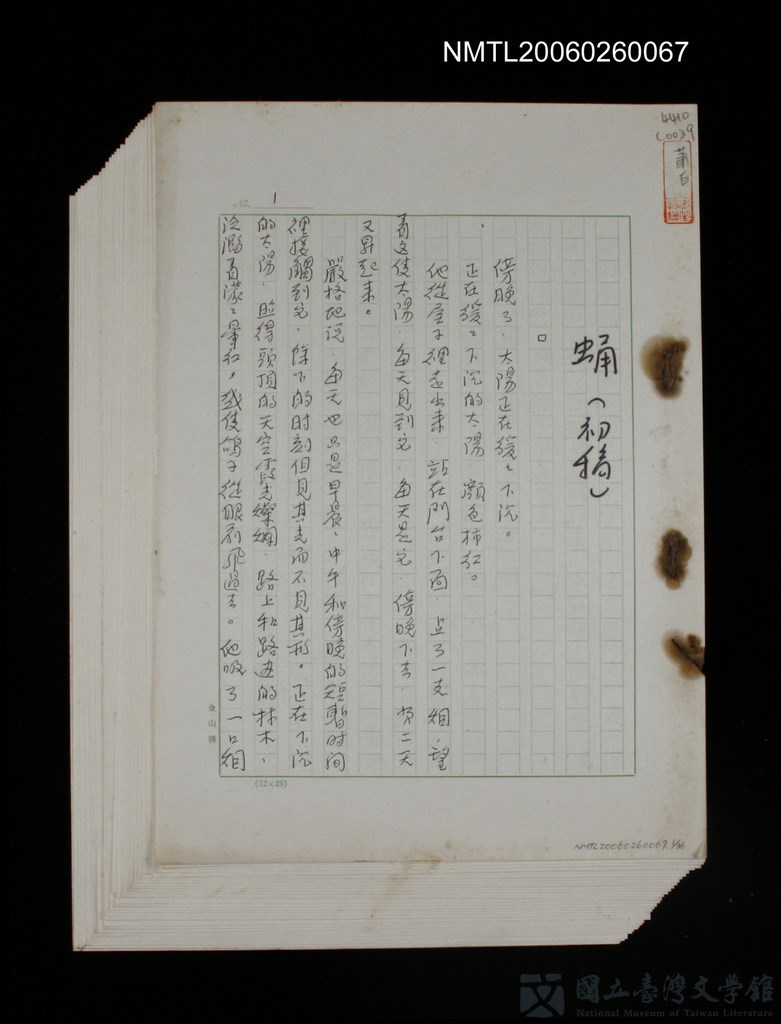 NMTL20060260067
4410
C0039
蕭白
No. 1
蛹（初稿）
傍晚了．太陽正在緩緩下沉。
正在緩緩下沉的太陽 顏色柿红。
他從屋子裡走出来．站在門台下面．点了一支烟．望
着这隻太陽．每天見到它．每天是它．傍晚下去．第二天
又昇起来。
嚴格地说．每天也只是早晨、中午和傍晚的短暫时间
裡接觸到它．餘下的时刻但見其光而不見其形。正在下沉
的太陽．照得頭頂的天空霞光燦爛．路上和路边的林木、
泛濫着濛濛暈红。幾隻鴿子從眼前飛過去。他吸了一口烟
金山牌
(12×25)
NMTL20060260067.1/36
國立臺灣文學館
National Museum of Taiwan Literature